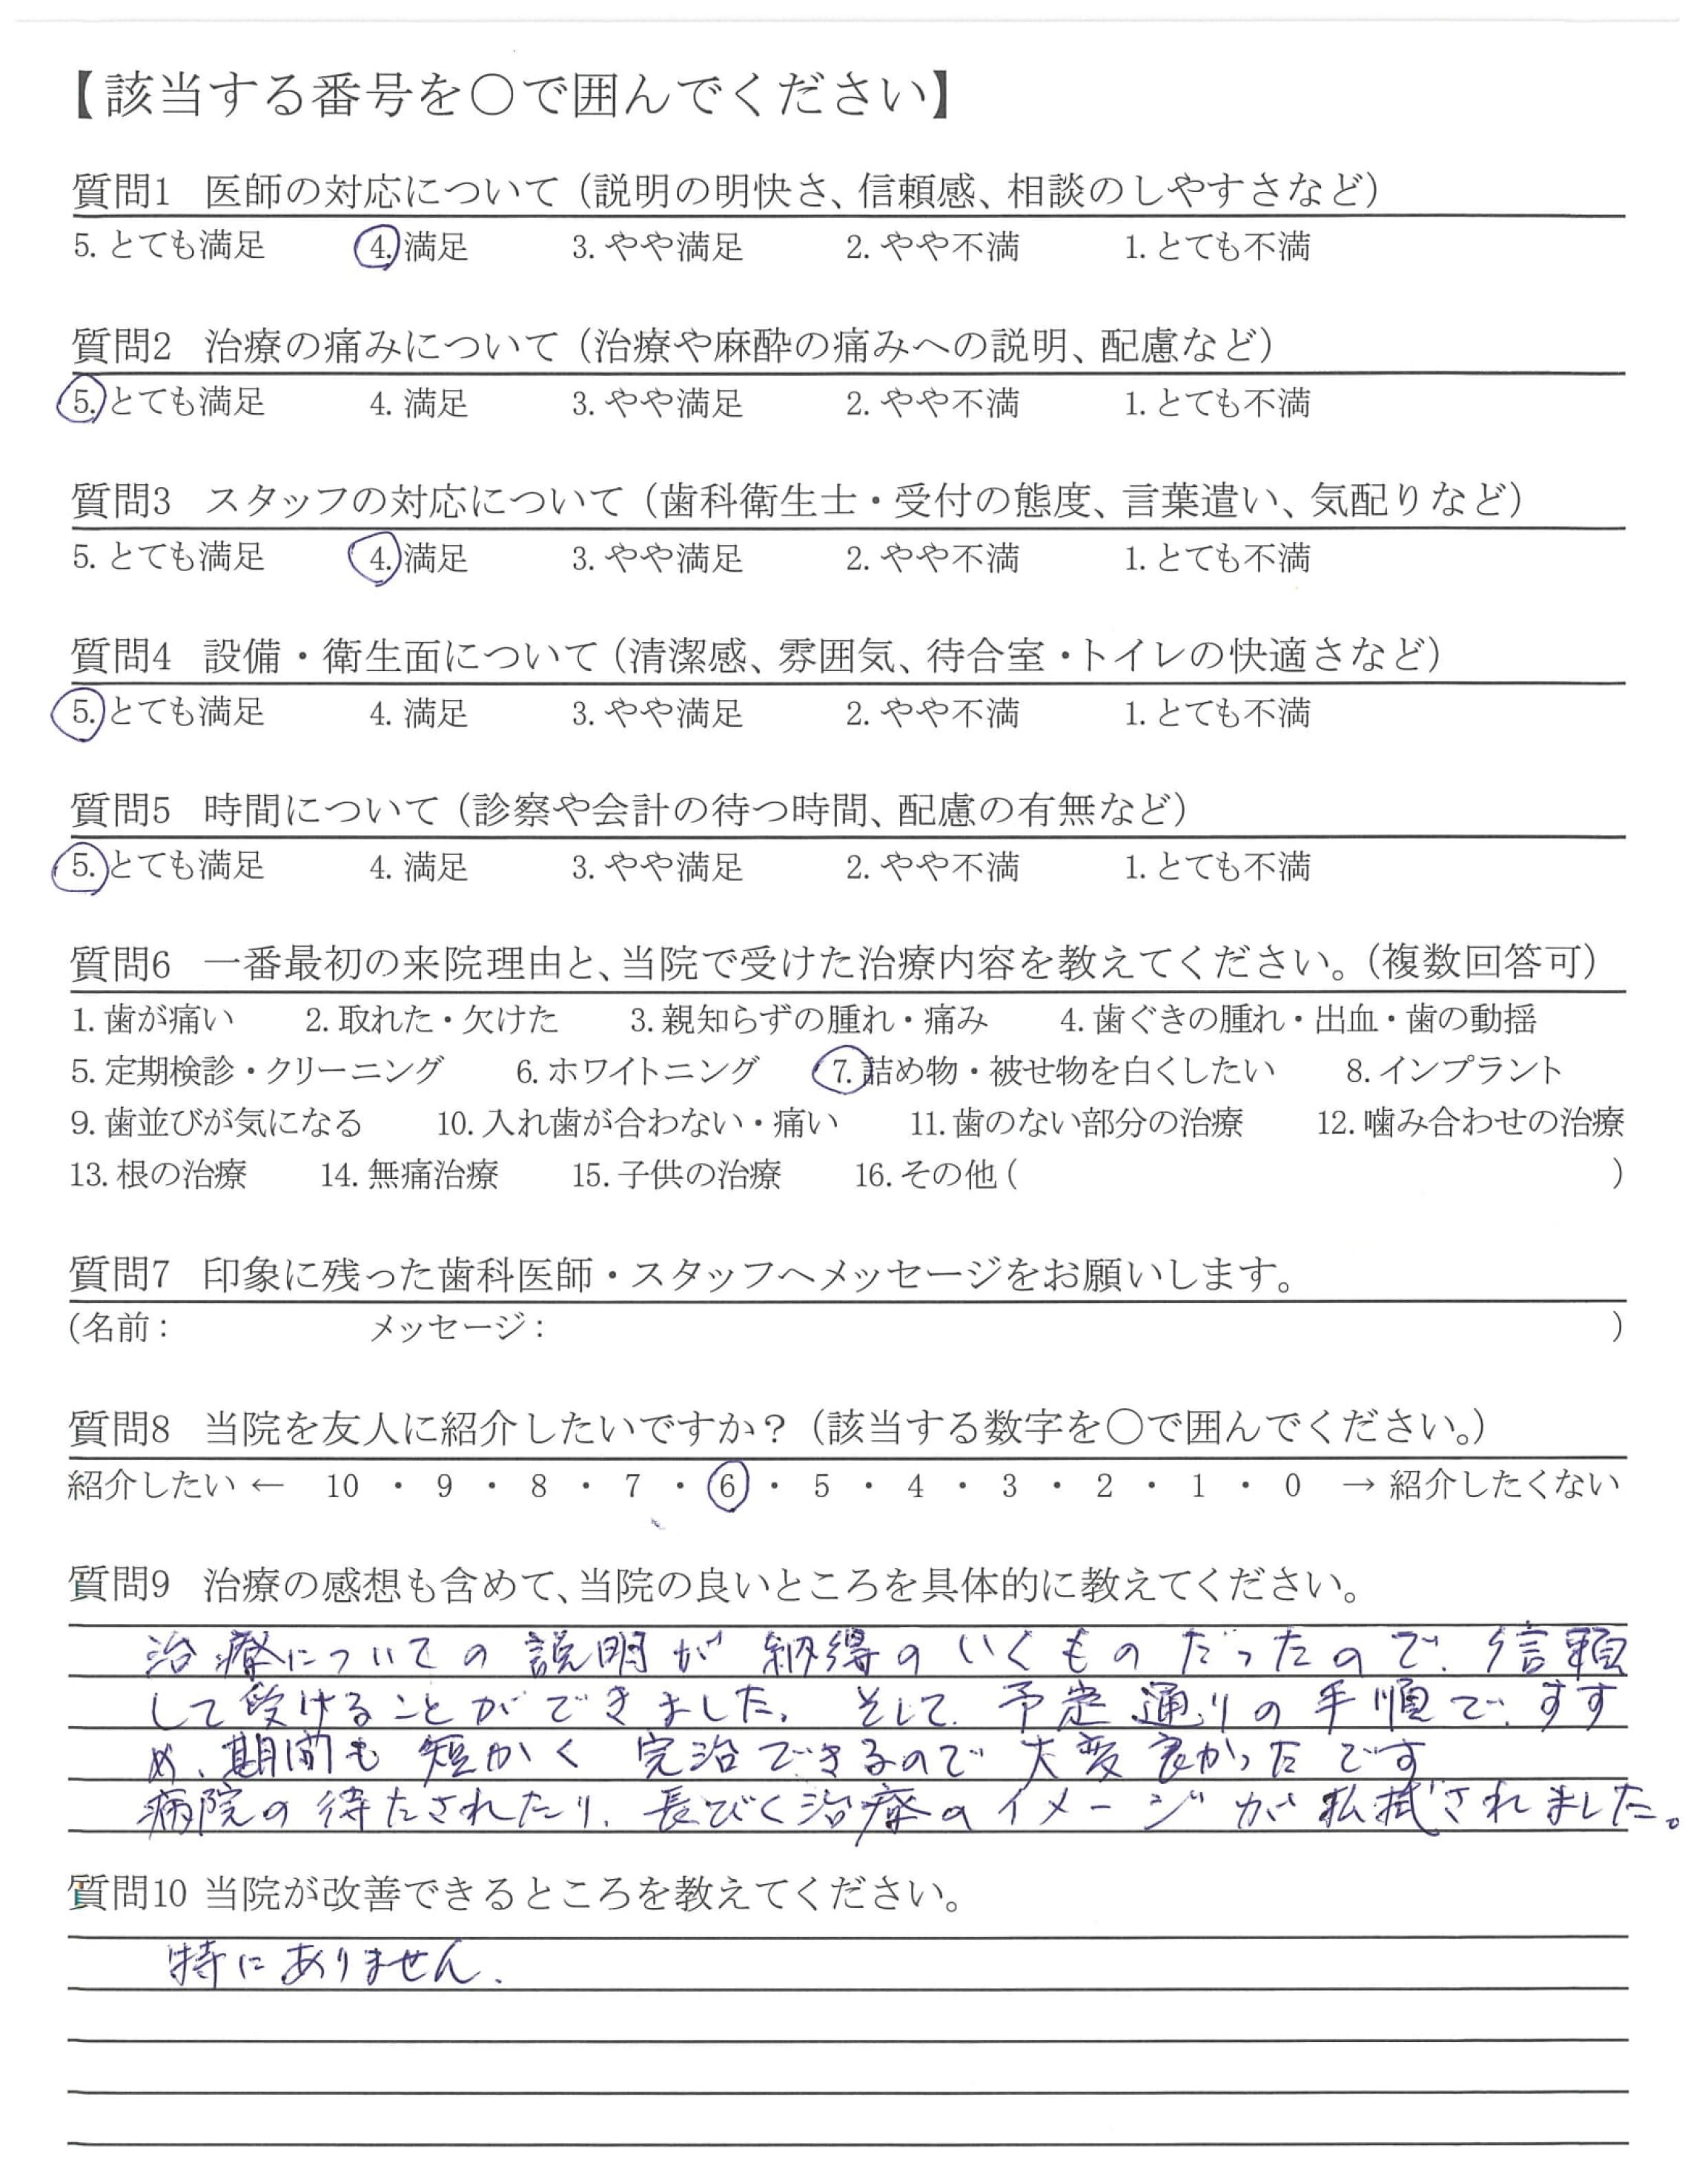 【該当する番号を〇で囲んでください】
質問1 医師の対応について（説明の明快さ、信頼感、相談のしやすさなど）
5. とても満足 4. 満足 3. やや満足 2. やや不満 1. とても不満
質問2 治療の痛みについて（治療や麻酔の痛みへの説明、配慮など）
5. とても満足 4. 満足 3. やや満足 2. やや不満 1. とても不満
質問3 スタッフの対応について（歯科衛生士・受付の態度、言葉遣い、気配りなど）
5. とても満足 4. 満足 3. やや満足 2. やや不満 1. とても不満
質問4 設備・衛生面について（清潔感、雰囲気、待合室・トイレの快適さなど）
5. とても満足 4. 満足 3. やや満足 2. やや不満 1. とても不満
質問5 時間について（診察や会計の待つ時間、配慮の有無など）
5. とても満足 4. 満足 3. やや満足 2. やや不満 1. とても不満
質問6 一番最初の来院理由と、当院で受けた治療内容を教えてください。（複数回答可）
1. 歯が痛い 2. 取れた・欠けた 3. 親知らずの腫れ・痛み 4. 歯ぐきの腫れ・出血・歯の動揺
5. 定期検診・クリーニング 6. ホワイトニング 7. 詰め物・被せ物を白くしたい 8. インプラント
9. 歯並びが気になる 10. 入れ歯が合わない・痛い 11. 歯のない部分の治療 12. 噛み合わせの治療
13. 根の治療 14. 無痛治療 15. 子供の治療 16. その他 ( )
質問7 印象に残った歯科医師・スタッフへメッセージをお願いします。
(名前： メッセージ： )
質問8 当院を友人に紹介したいですか？（該当する数字を〇で囲んでください。）
紹介したい ← 10 ・ 9 ・ 8 ・ 7 ・ 6 ・ 5 ・ 4 ・ 3 ・ 2 ・ 1 ・ 0 → 紹介したくない
質問9 治療の感想も含めて、当院の良いところを具体的に教えてください。
治療についての説明が納得のいくものだったので、信頼
して受けることができました。そして、予定通りの手順で、すす
め、期間も短かく完治できるので大変良かったです
病院の待たされたり、長びく治療のイメージが払拭されました。
質問10 当院が改善できるところを教えてください。
特にありません．